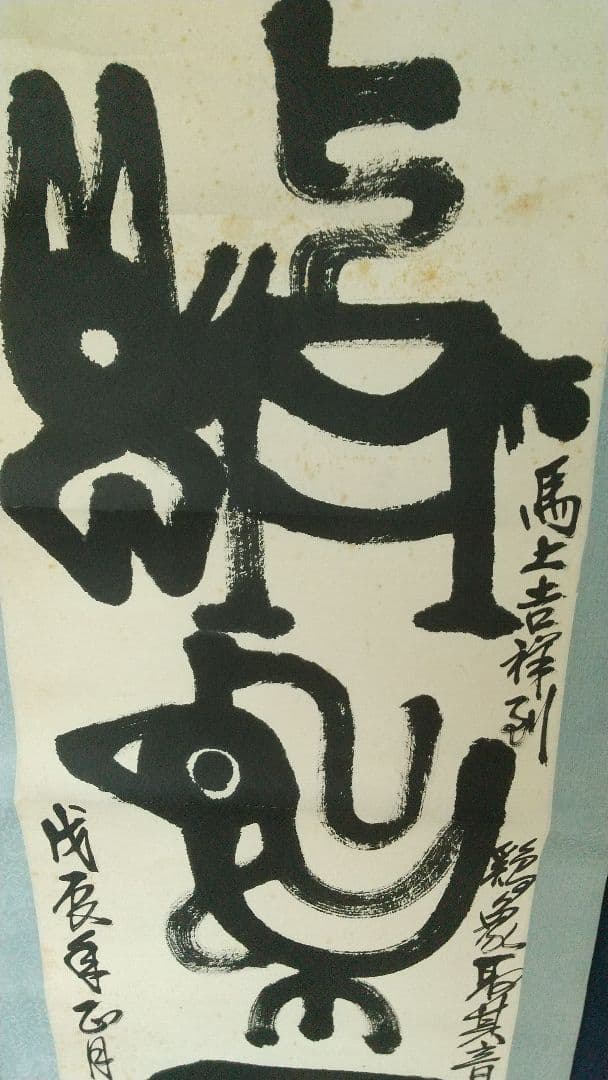 馬上吉祥到
鷄象取其音
戊辰年正月